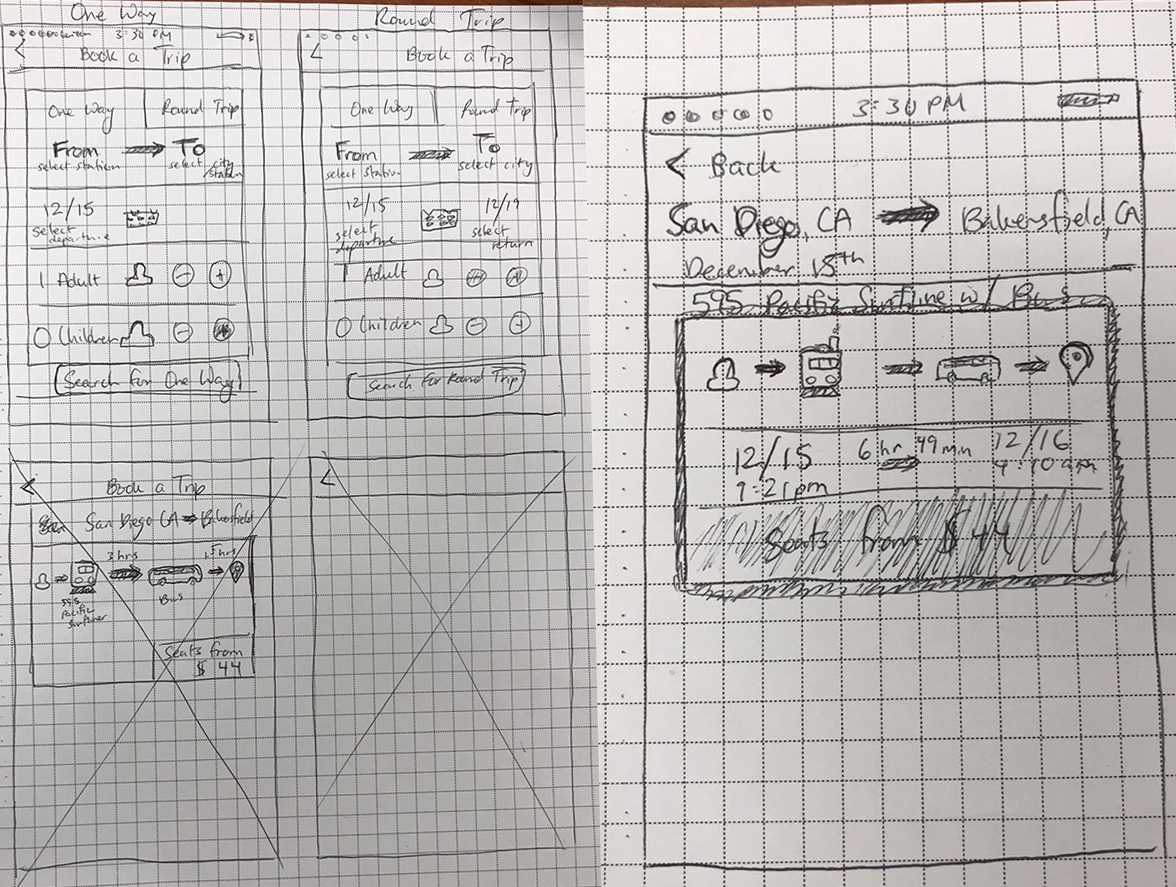 One Way
3:30 PM
Book a Trip
One Way Round Trip
From To
select station select city
station
12/15
select
departure
1 Adult
0 Children
Search for One Way
Round Trip
Book a Trip
One Way Round Trip
From To
select station select city
12/15 12/19
select select
departure return
1 Adult
0 Children
Search for Round Trip
Book a Trip
San Diego CA Bakersfield
3 hrs 1.5 hrs
595
Pacific
Surfliner
Bus
Seats from
$ 44
3:30 PM
< Back
San Diego, CA Bakersfield, CA
December 15th
595 Pacific Surfline w/ Bus
12/15 6 hr 49 min 12/16
9:21pm 4:10am
Seats from $ 44